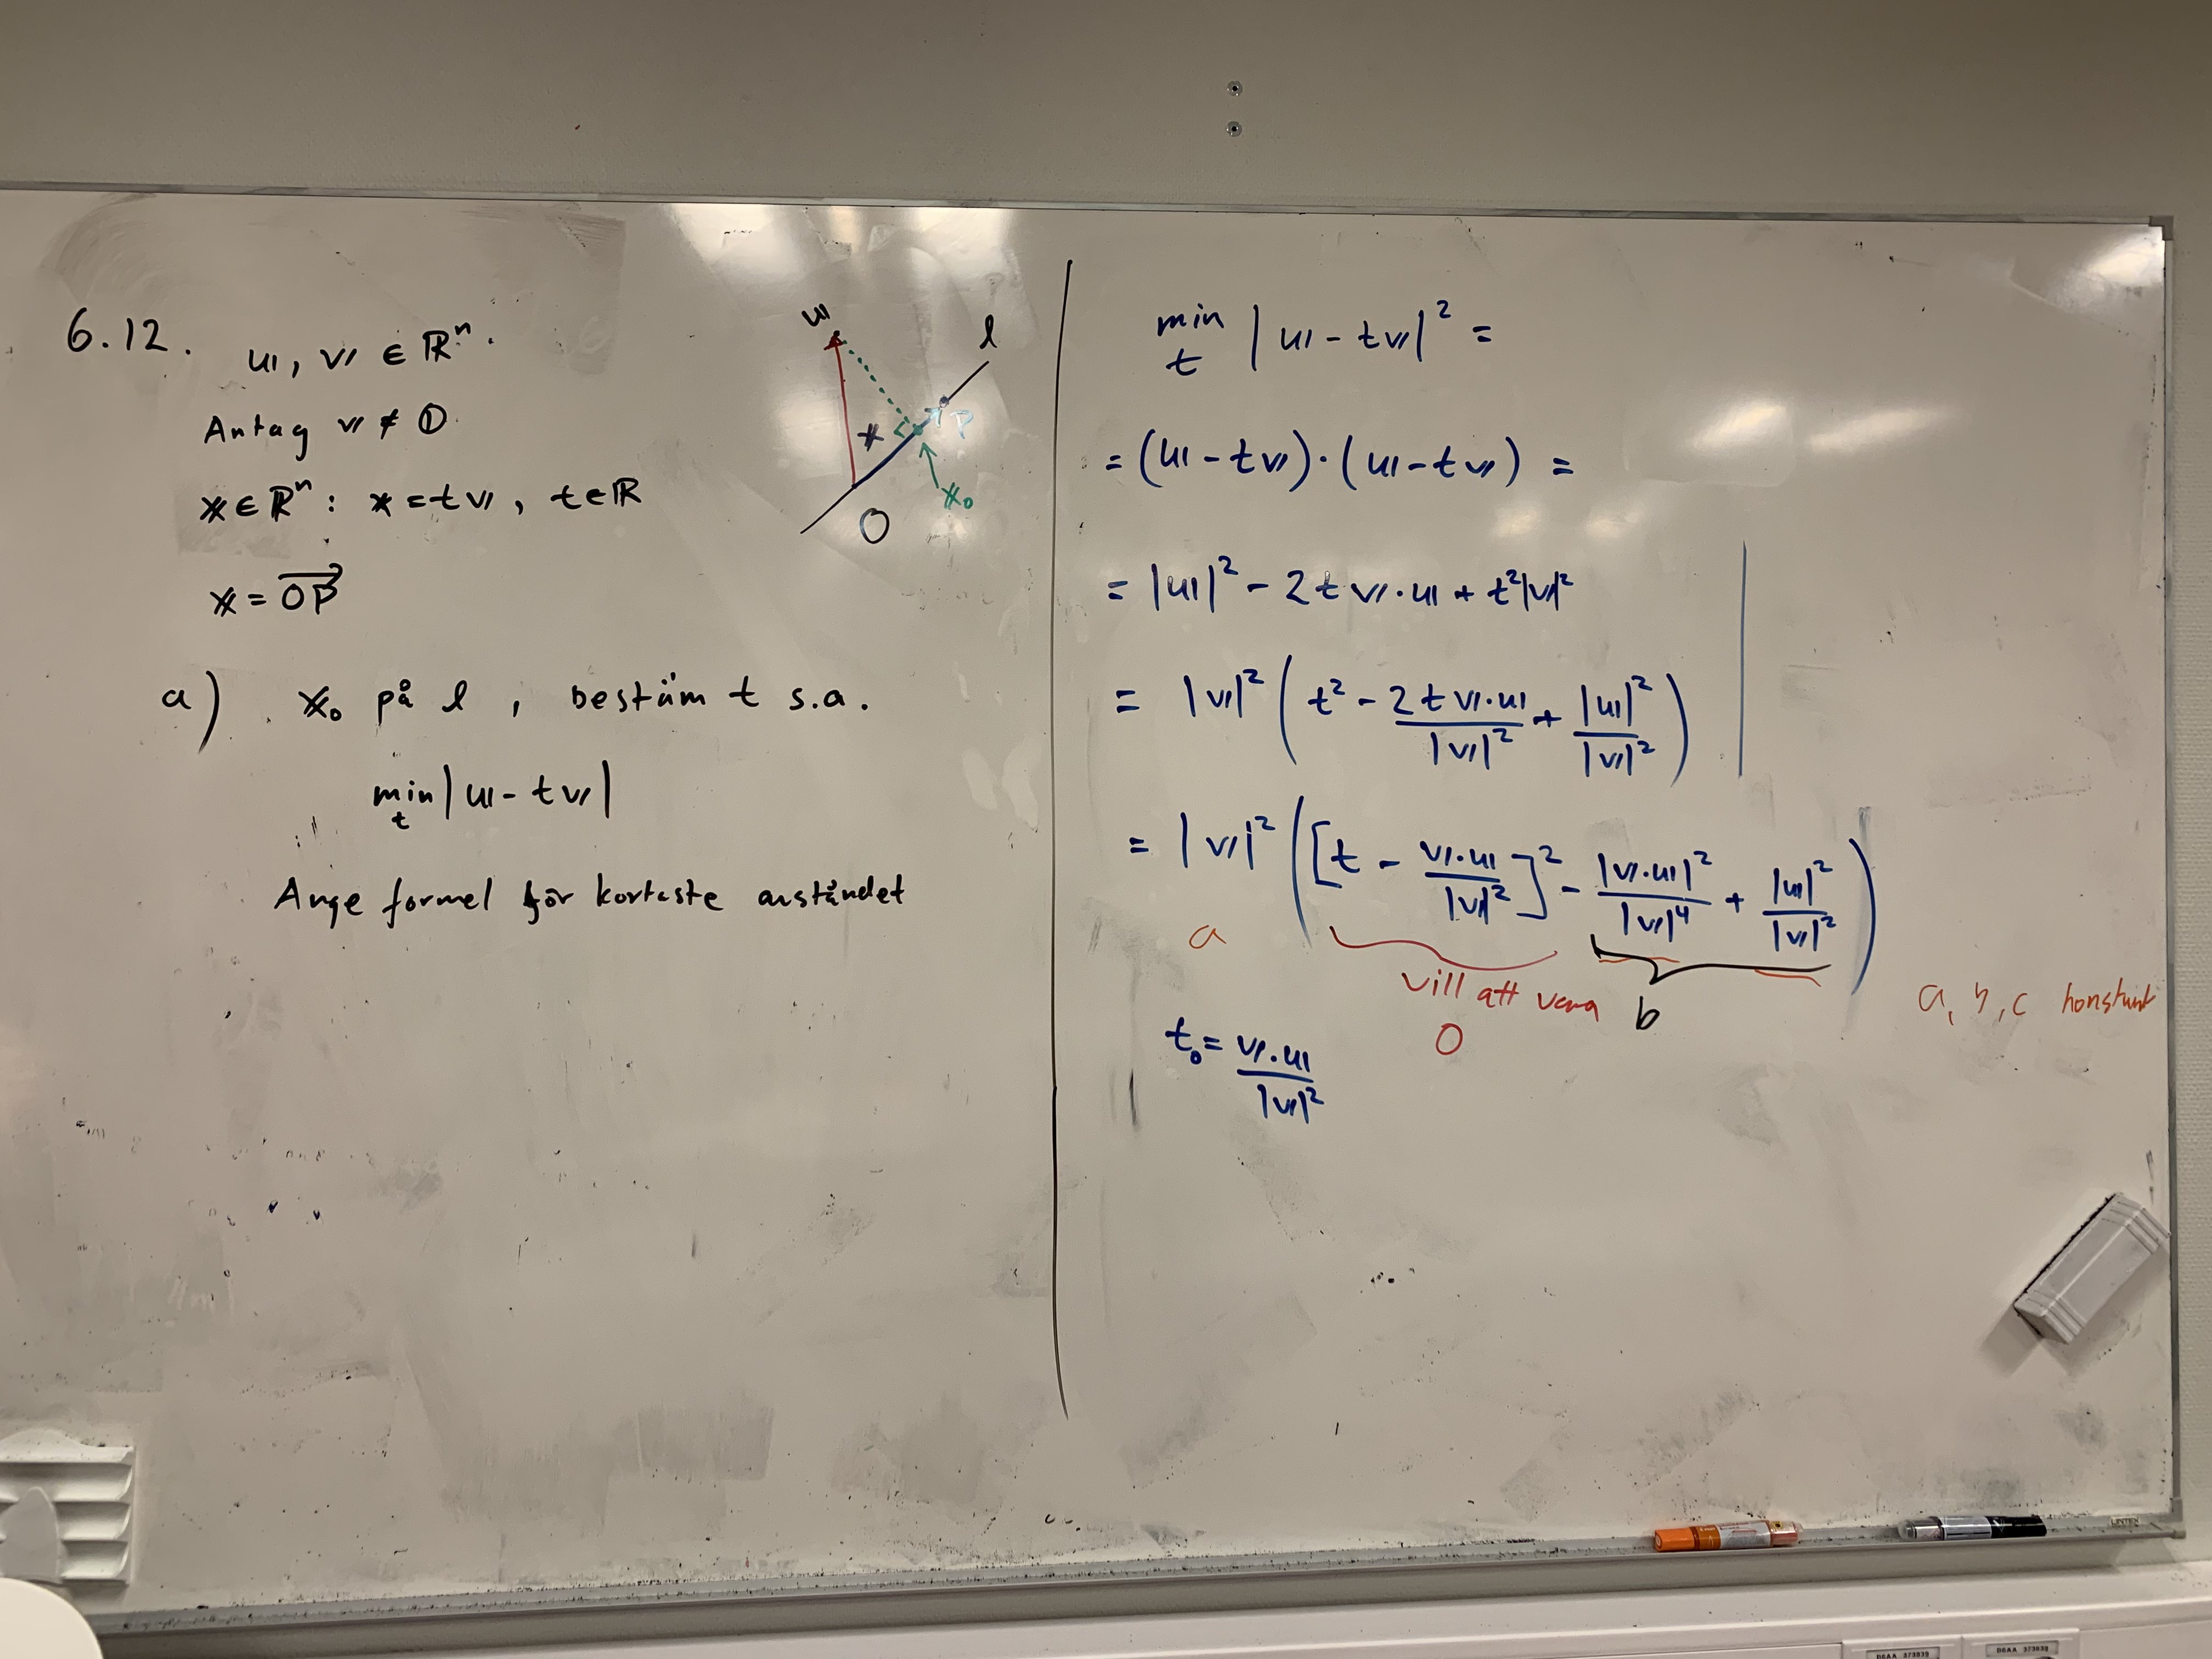 6.12. u, v ∈ ℝⁿ.
Antag v ≠ 0
x ∈ ℝⁿ : x = tv, t ∈ ℝ
x = \overrightarrow{OP}
u
l
P
x
x₀
O
a) x₀ på l, bestäm t s.a.
min_t |u - tv|
Ange formel för kortaste avståndet
min_t |u - tv|² =
= (u - tv)·(u - tv) =
= |u|² - 2tv·u + t²|v|²
= |v|² ( t² - \frac{2tv·u}{|v|²} + \frac{|u|²}{|v|²} )
= |v|² ( [t - \frac{v·u}{|v|²}]² - \frac{|v·u|²}{|v|⁴} + \frac{|u|²}{|v|²} )
a
vill att vara
0
b
a, b, c konstant
t₀ = \frac{v·u}{|v|²}
D6AA 373839
D6AA 373838